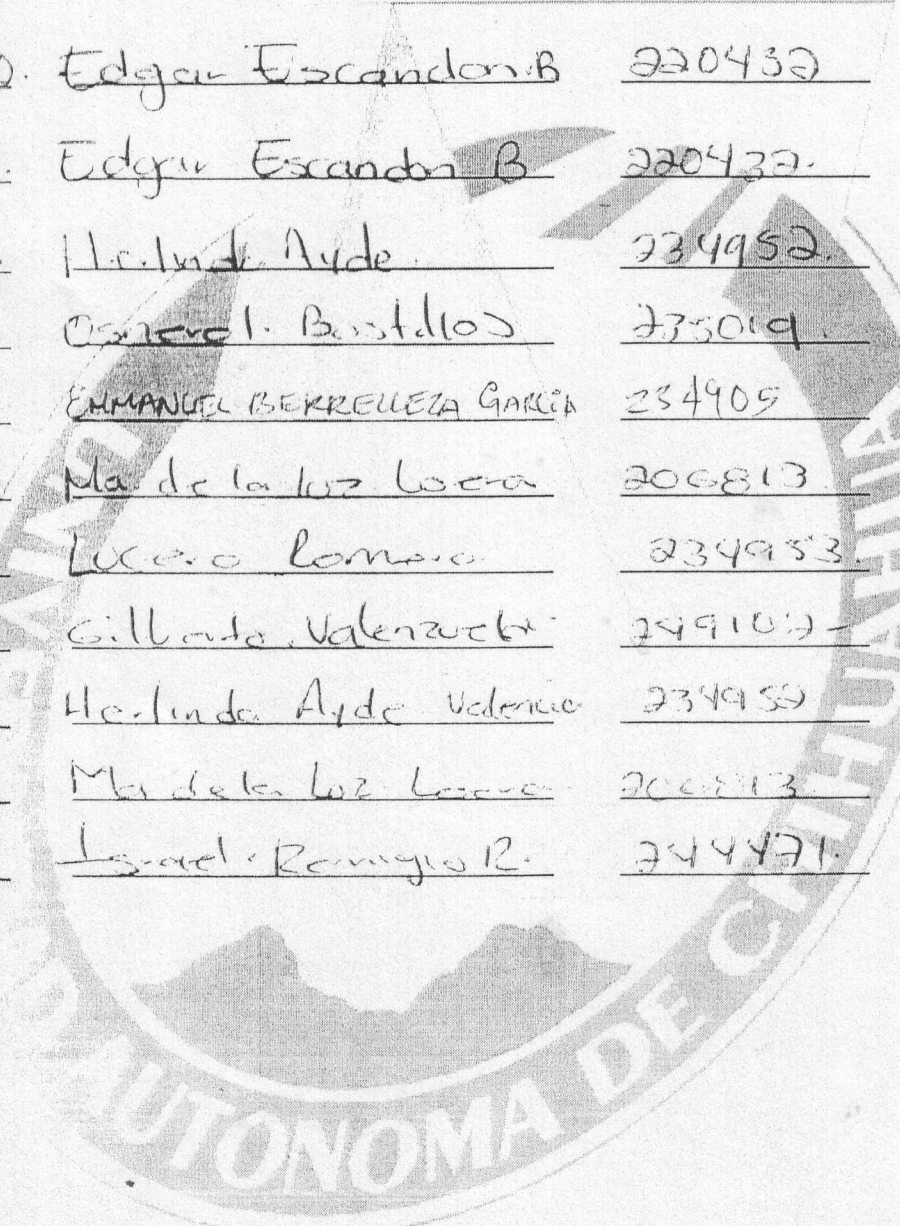 Edgar Escandon B 220432
Edgar Escandon B 220432.
Herlinda Ayde 234952.
Bustillos 235019.
EMMANUEL BERRELLEZA GARCIA 234905
Ma de la luz Loera 206813
Lucero Romero 234953.
Gilberto Valenzuela 249107-
Herlinda Ayde Valencia 234952
Ma de la Luz Loera 206813
Israel Remigio R. 244471.
AUTONOMA DE CHIHUAHUA